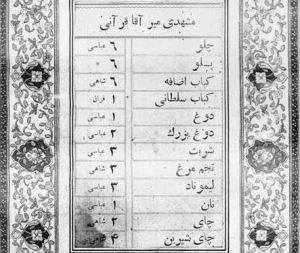 مشهدی میر آقا قرآنی
چلو ۶ عباسی
پلو ۶ "
کباب اضافه ۶ شاهی
کباب سلطانی ۱ قران
دوغ ۱ عباسی
دوغ بزرك ۲ عباسی
شربت ۳ عباسی
تخم مرغ ۳ شاهی
لیموناد ۳ عباسی
نان ۱ عباسی
چای ۲ شاهی
چای شیرین ۴